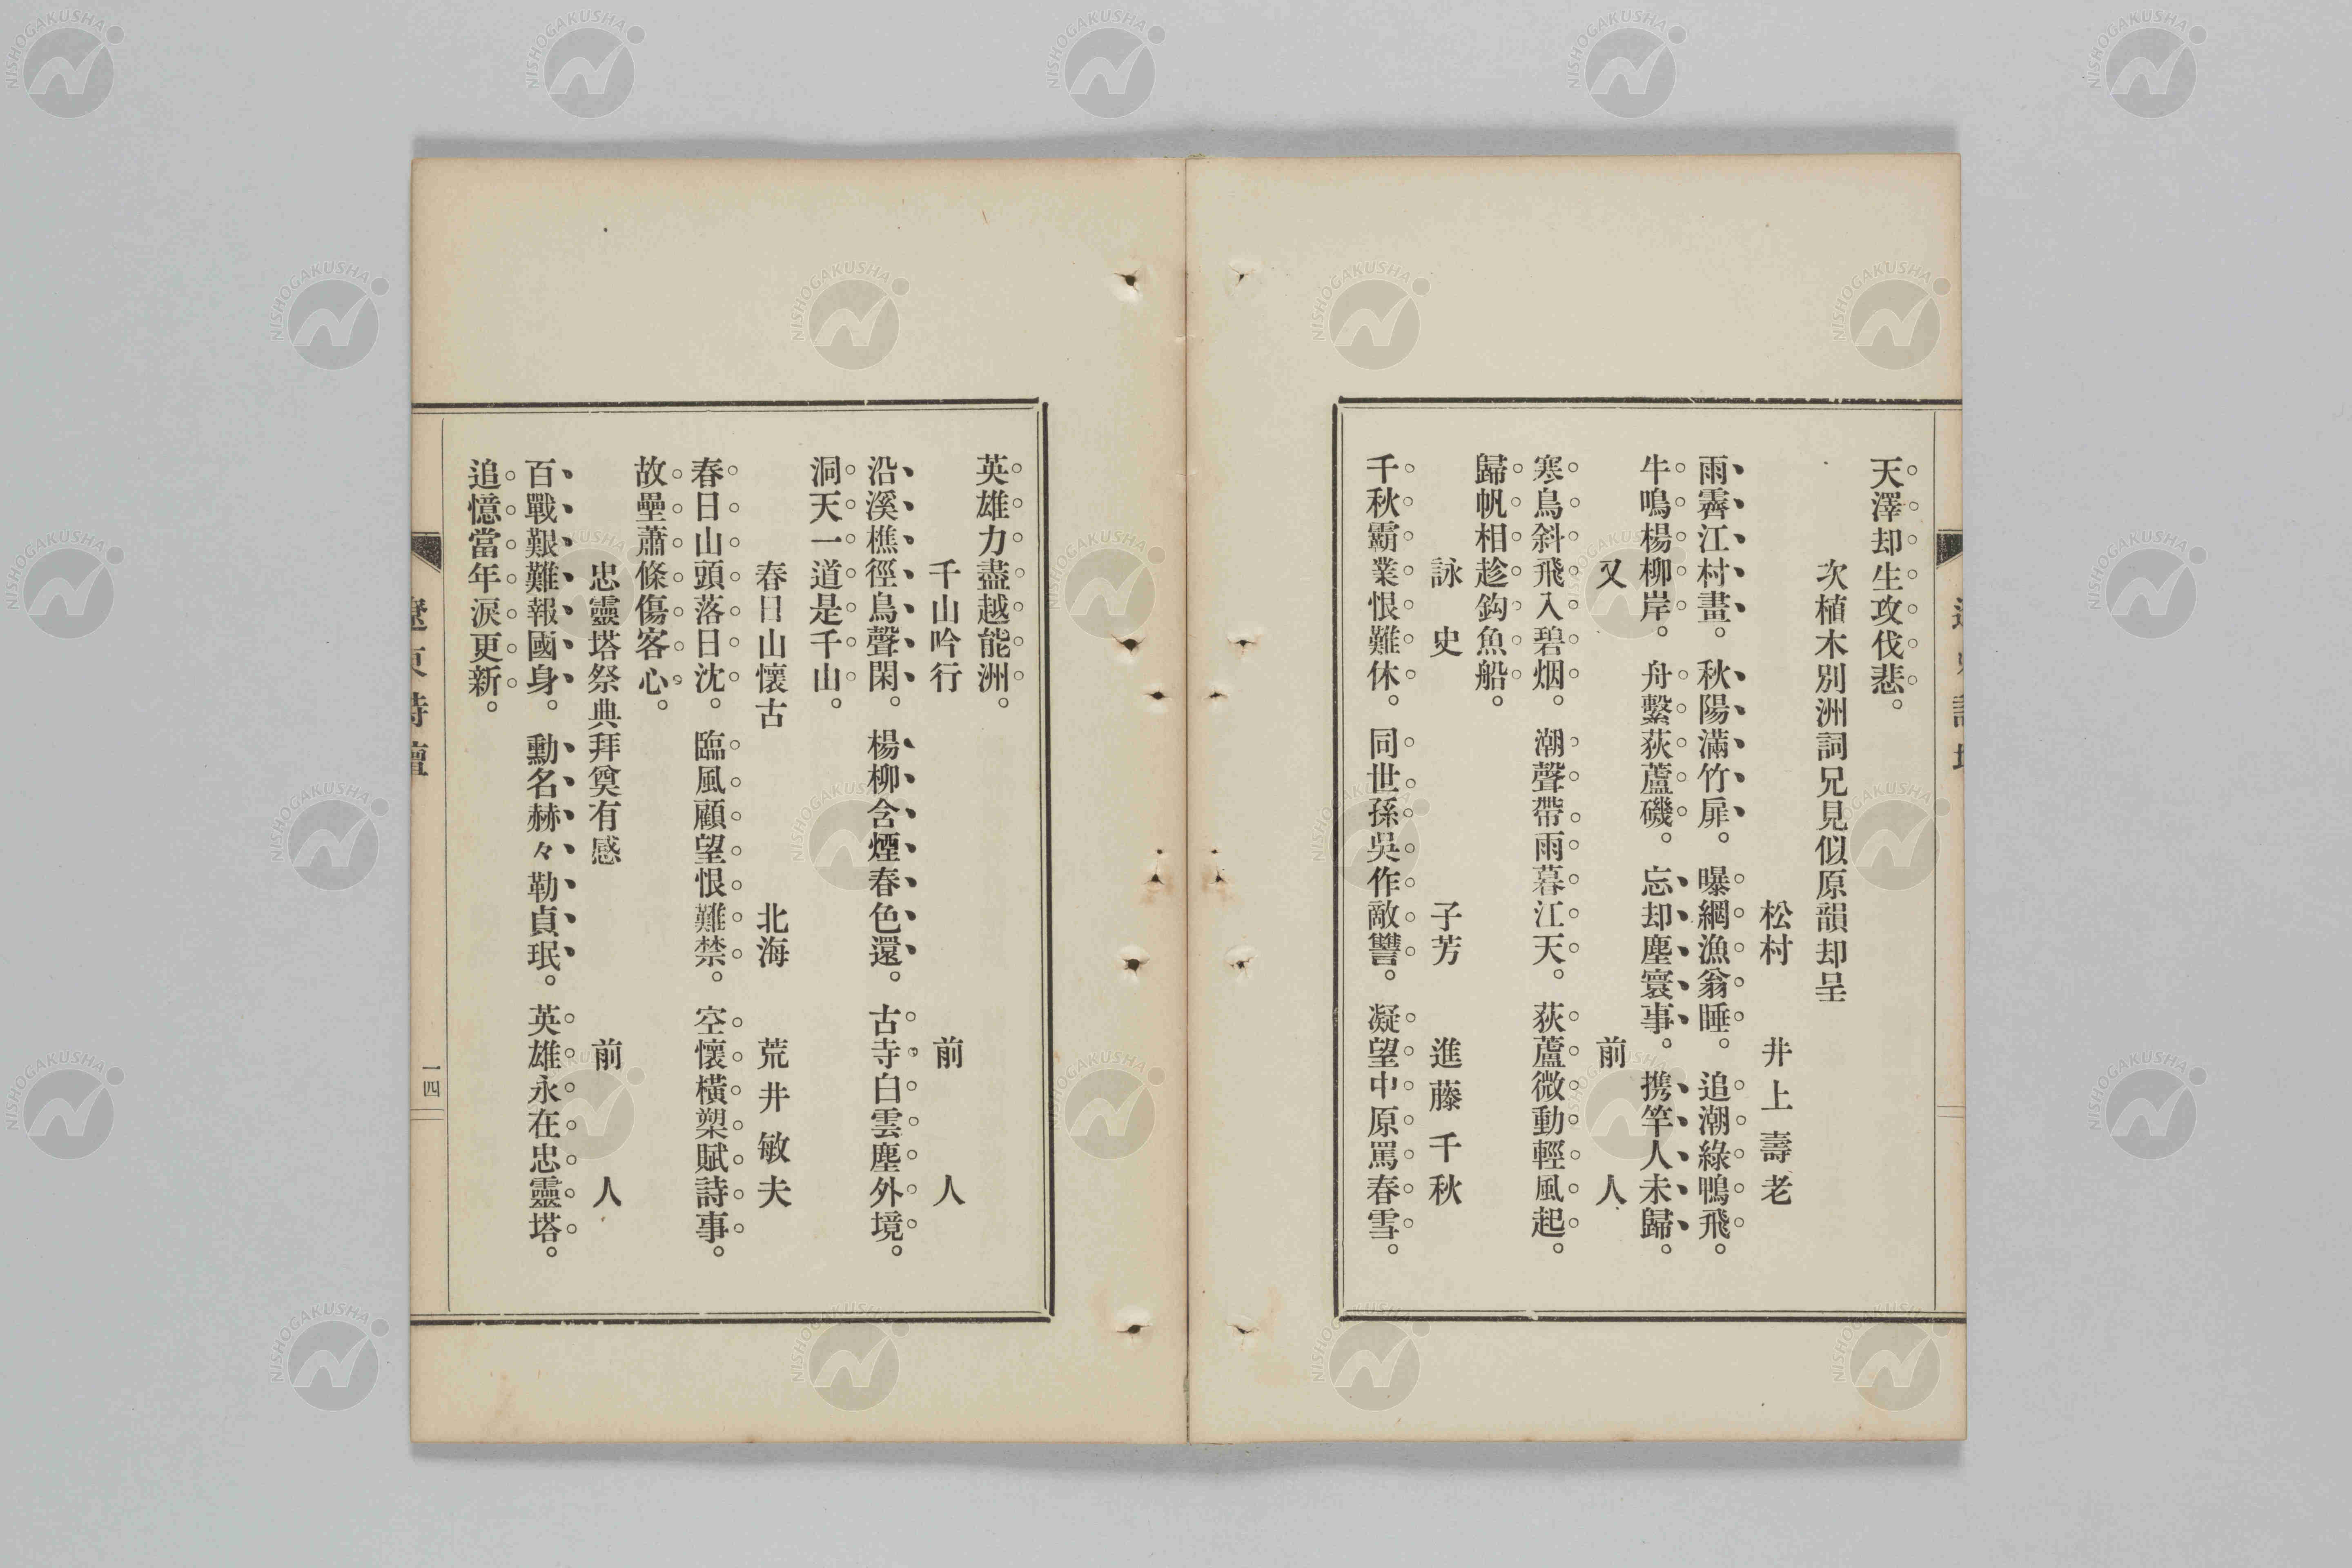 天澤却生攻伐悲。
次植木別洲詞兄見似原韻却呈
松村 井上壽老
雨霽江村晝。秋陽滿竹扉。曝網漁翁睡。追潮綠鴨飛。
牛鳴楊柳岸。舟繫荻蘆磯。忘却塵寰事。携竿人未歸。
又 前人
寒鳥斜飛入碧烟。潮聲帶雨暮江天。荻蘆微動輕風起。
歸帆相趁鈎魚船。
詠史 子芳 進藤千秋
千秋霸業恨難休。同世孫吳作敵讐。凝望中原罵春雪。
英雄力盡越能洲。
千山吟行 前人
沿溪樵徑鳥聲閑。楊柳含煙春色還。古寺白雲塵外境。
洞天一道是千山。
春日山懷古 北海 荒井敏夫
春日山頭落日沈。臨風顧望恨難禁。空懷橫槊賦詩事。
故壘蕭條傷客心。
忠靈塔祭典拜奠有感 前人
百戰艱難報國身。勳名赫々勒貞珉。英雄永在忠靈塔。
追憶當年淚更新。
遼東詩壇
一四
NISHOGAKUSHA